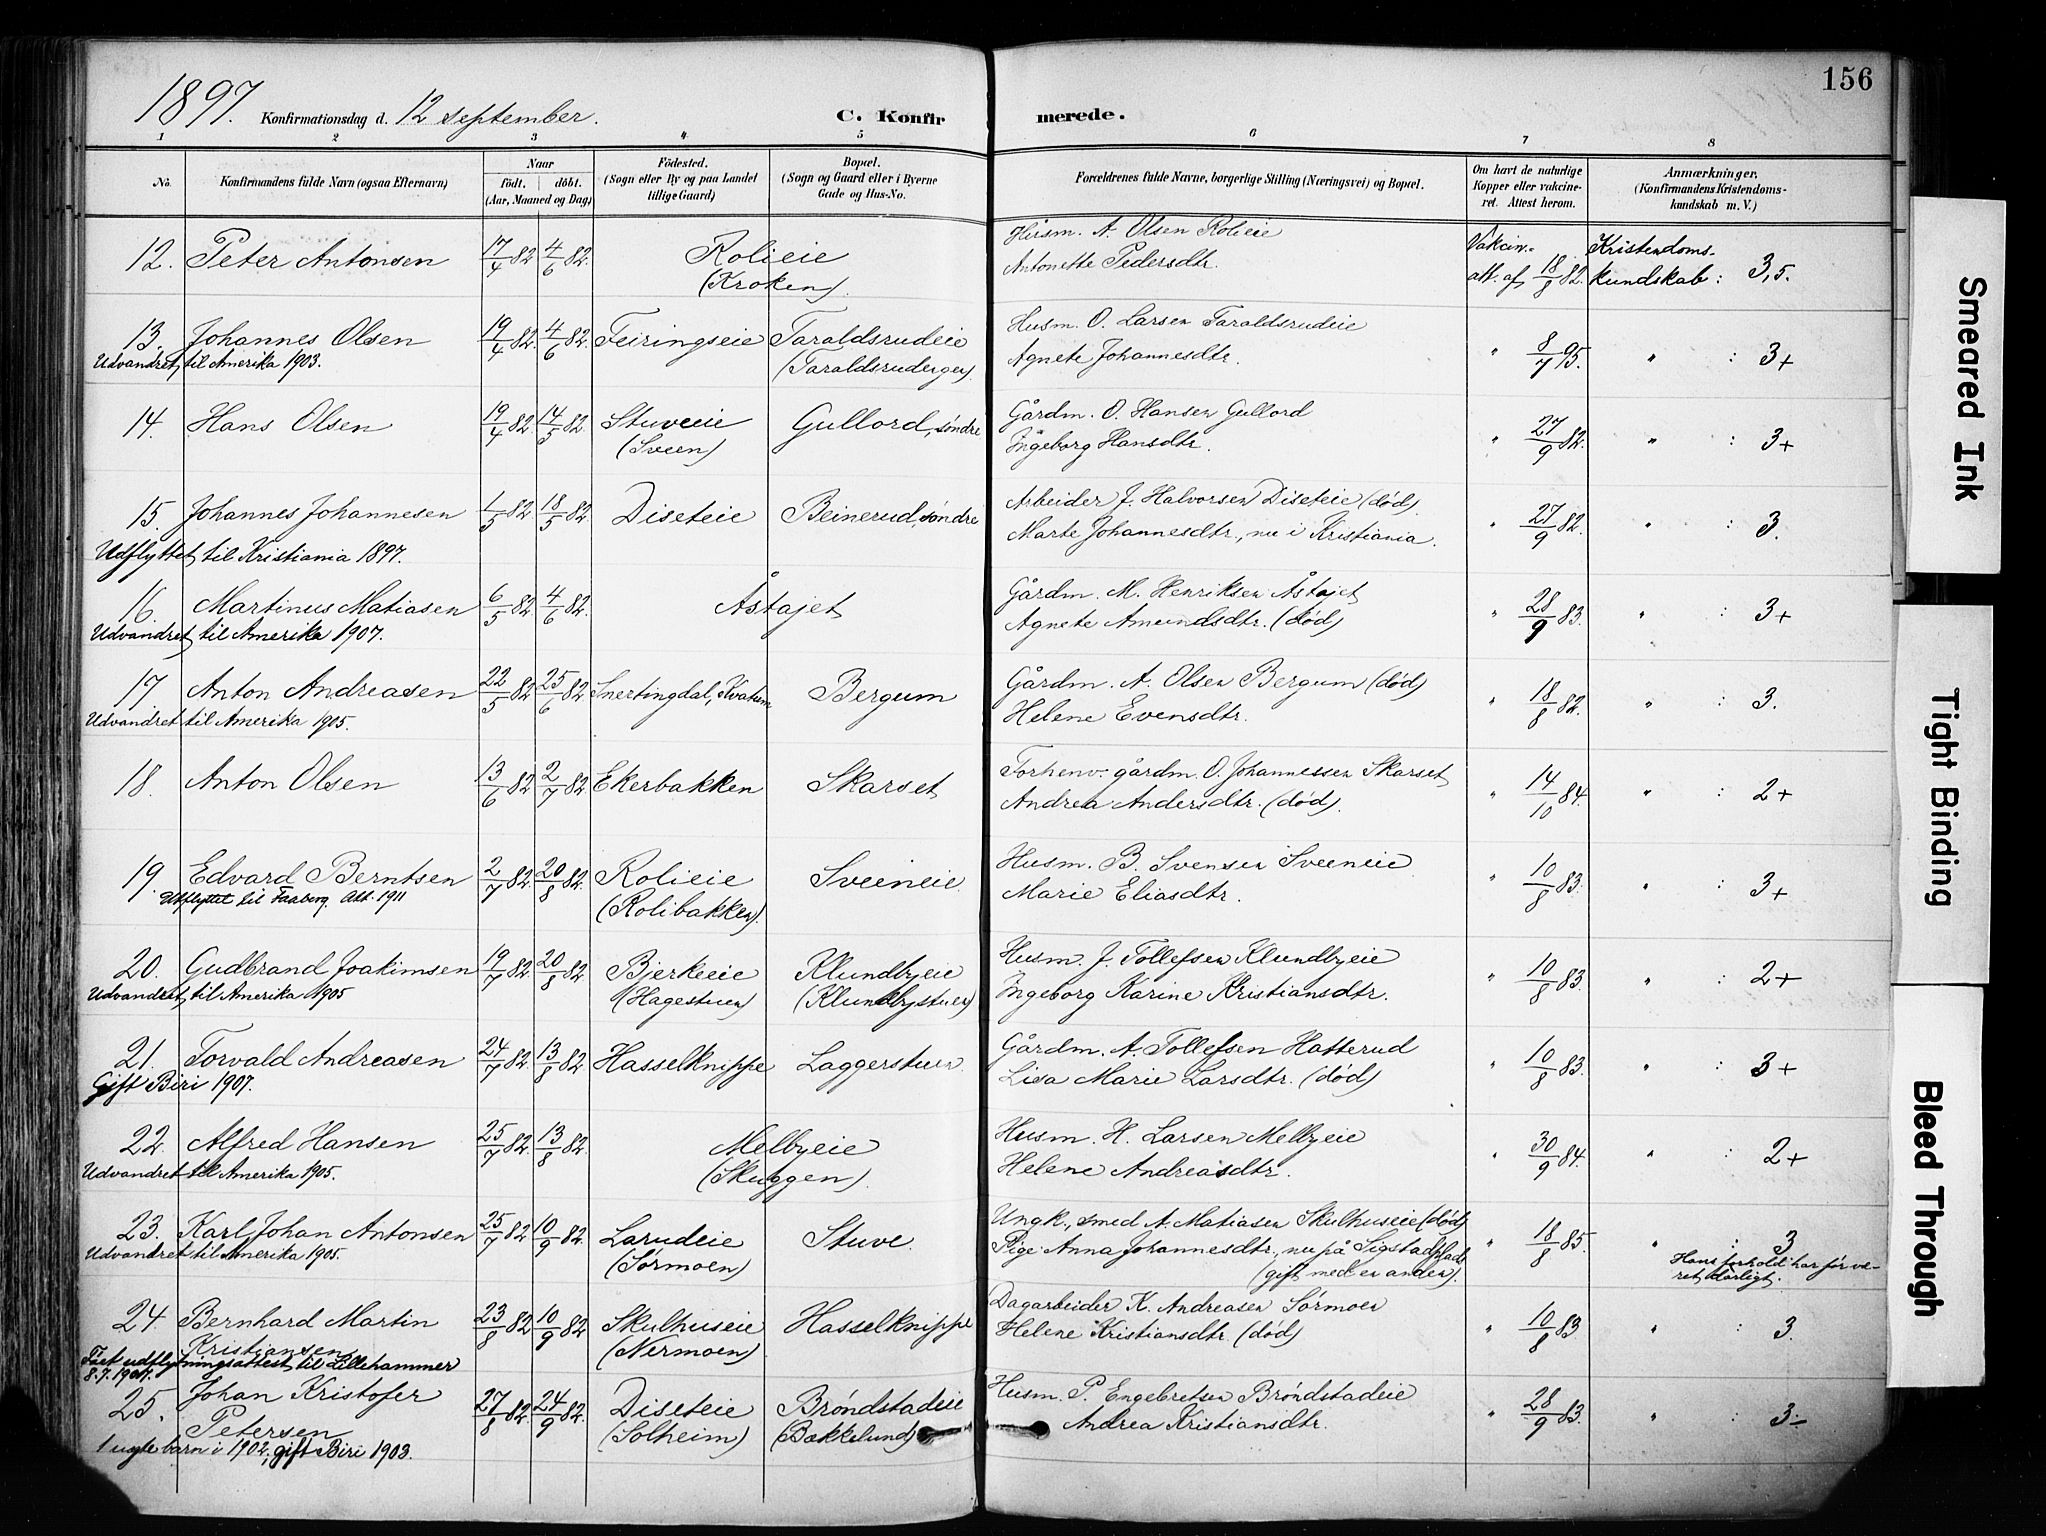 156
1897. Konfirmationsdag d. 12 september. C. Konfirmerede.
1 2 3 4 5 6 7 8
No. Konfirmandens fulde Navn (ogsaa Efternavn) Naar födt. döbt. (Aar, Maaned og Dag) Födested. (Sogn eller By og paa Landet tillige Gaard) Bopæl. (Sogn og Gaard eller i Byerne Gade og Hus-No. Forældrenes fulde Navne, borgerlige Stilling (Næringsvei) og Bopæl. Om havt de naturlige Kopper eller vakcineret. Attest herom. Anmærkninger. (Konfirmandens Kristendomskundskab m. V.)
12. Peter Antonsen 17/4 82 4/6 82. Rolieie (Kroken). Husm. A. Olsen Rolieie Vakcin.- Kristendoms-
Antonette Pedersdtr. att. af 18/8 82. kundskab : 3,5.
13. Johannes Olsen 19/4 82. 4/6 82. Feiringseie Taraldsrudeie (Taraldsruderger). Husm. O. Larsen Taraldsrudeie
Udvandret til Amerika 1903. Agnete Johannesdtr. " 8/7 95. " : 3+
14. Hans Olsen 19/4 82 14/5 82. Stuveeie (Sveen) Gullord, søndre Gårdm. O. Hansen Gullord
Ingeborg Hansdtr. " 27/9 82. " : 3+
15. Johannes Johannesen 1/5 82 18/5 82. Diseteie Beinerud, søndre Arbeider J. Halvorsen Diseteie (død)
Udflyttet til Kristiania 1897. Marte Johannesdtr., nu i Kristiania. " 27/9 82. " : 3.
16. Martinus Matiasen 6/5 82 4/6 82. Åstajet Gårdm. M. Henriksen Åstajet
Udvandret til Amerika 1907. Agnete Amundsdtr. (død) " 28/9 83. " : 3+
17 Anton Andreasen 22/5 82 25/6 82 Snertingdal, Kvatum Bergum Gårdm. A. Olsen Bergum (død)
Udvandret til Amerika 1905. Helene Evensdtr. " 18/8 82. " : 3.
18. Anton Olsen 13/6 82 2/7 82 Ekerbakken Skarset Forhenv. gårdm. O. Johannessen Skarset
Andrea Andersdtr. (død). " 14/10 84. " : 2+
19. Edvard Berntsen 2/7 82 20/8 82 Rolieie (Rolibakken). Sveeneie Husm. B. Svensen Sveeneie
Utflyttet til Faaberg. Att. 1911 Marie Eliasdtr. " 10/8 83. " : 3+
20. Gudbrand Joakimsen 19/7 82. 20/8 82 Bjerkeeie (Hagestuen) Klundbyeie (Klundbystuen) Husm. J. Tollefsen Klundbyeie
Udvandret til Amerika 1905 Ingeborg Karine Kristiansdtr. " 10/8 83. " : 2+
21. Torvald Andreasen 24/7 82. 13/8 82. Hasselknippe Laggerstuen Gårdm. A. Tollefsen Hatterud
Gift Biri 1907. Lisa Marie Larsdtr. (død) " 10/8 83. " : 3+
22. Alfred Hansen 25/7 82. 13/8 82. Melbyeie (Skuggen). Husm. H. Larsen Melbyeie
Udvandret til Amerika 1905. Helene Andreasdtr. " 30/9 84. " : 2+
23. Karl Johan Antonsen 25/7 82 10/9 82. Larudeie (Sørmoen) Stuve Ungk., smed A. Matiasen Skulhuseie (død)
Udvandret til Amerika 1905. Pige Anna Johannesdtr., nu på Sigstadplads (gift med en anden). " 18/8 85. " : 3
Hans forhold har før været dårligt.
24. Bernhard Martin Kristiansen 23/8 82 10/9 82 Skulhuseie (Nermoen) Hasselknippe Dagarbeider K. Andreasen Sørmoen
Fået udflytningsattest til Lillehammer 8.7.1907. Helene Kristiansdtr. (død) " 10/8 83 " : 3.
25. Johan Kristofer Petersen 27/8 82. 24/9 82. Diseteie (Solheim) Brøndstadeie (Bækkelund) Husm. P. Engebretsen Brøndstadeie
1 uægte barn i 1902, gift Biri 1903. Andrea Kristiansdtr. " 28/9 83. " : 3-
Smeared Ink
Tight Binding
Bleed Through